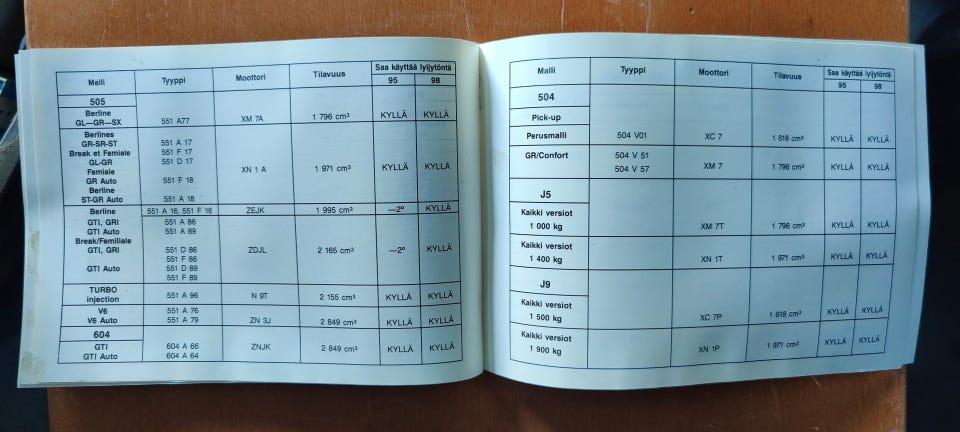 Malli Tyyppi Moottori Tilavuus Saa käyttää lyijytöntä
95 98
505
Berline
GL—GR—SX 551 A77 XM 7A 1 796 cm³ KYLLÄ KYLLÄ
Berlines
GR-SR-ST 551 A 17
Break et Famiale 551 F 17
GL-GR 551 D 17
Famiale XN 1 A 1 971 cm³ KYLLÄ KYLLÄ
GR Auto 551 F 18
Berline
ST-GR Auto 551 A 18
Berline 551 A 16, 551 F 16 ZEJK 1 995 cm³ —2º KYLLÄ
GTI, GRI 551 A 86
GTI Auto 551 A 89
Break/Familiale
GTI, GRI 551 D 86 ZDJL 2 165 cm³ —2º KYLLÄ
551 F 86
GTI Auto 551 D 89
551 F 89
TURBO
injection 551 A 96 N 9T 2 155 cm³ KYLLÄ KYLLÄ
V6 551 A 76
V6 Auto 551 A 79 ZN 3J 2 849 cm³ KYLLÄ KYLLÄ
604
GTI 604 A 66 ZNJK 2 849 cm³ KYLLÄ KYLLÄ
GTI Auto 604 A 64
Malli Tyyppi Moottori Tilavuus Saa käyttää lyijytöntä
95 98
504
Pick-up
Perusmalli 504 V01 XC 7 1 618 cm³ KYLLÄ KYLLÄ
GR/Confort 504 V 51
504 V 57 XM 7 1 796 cm³ KYLLÄ KYLLÄ
J5
Kaikki versiot
1 000 kg XM 7T 1 796 cm³ KYLLÄ KYLLÄ
Kaikki versiot
1 400 kg XN 1T 1 971 cm³ KYLLÄ KYLLÄ
J9
Kaikki versiot
1 500 kg XC 7P 1 618 cm³ KYLLÄ KYLLÄ
Kaikki versiot
1 900 kg XN 1P 1 971 cm³ KYLLÄ KYLLÄ